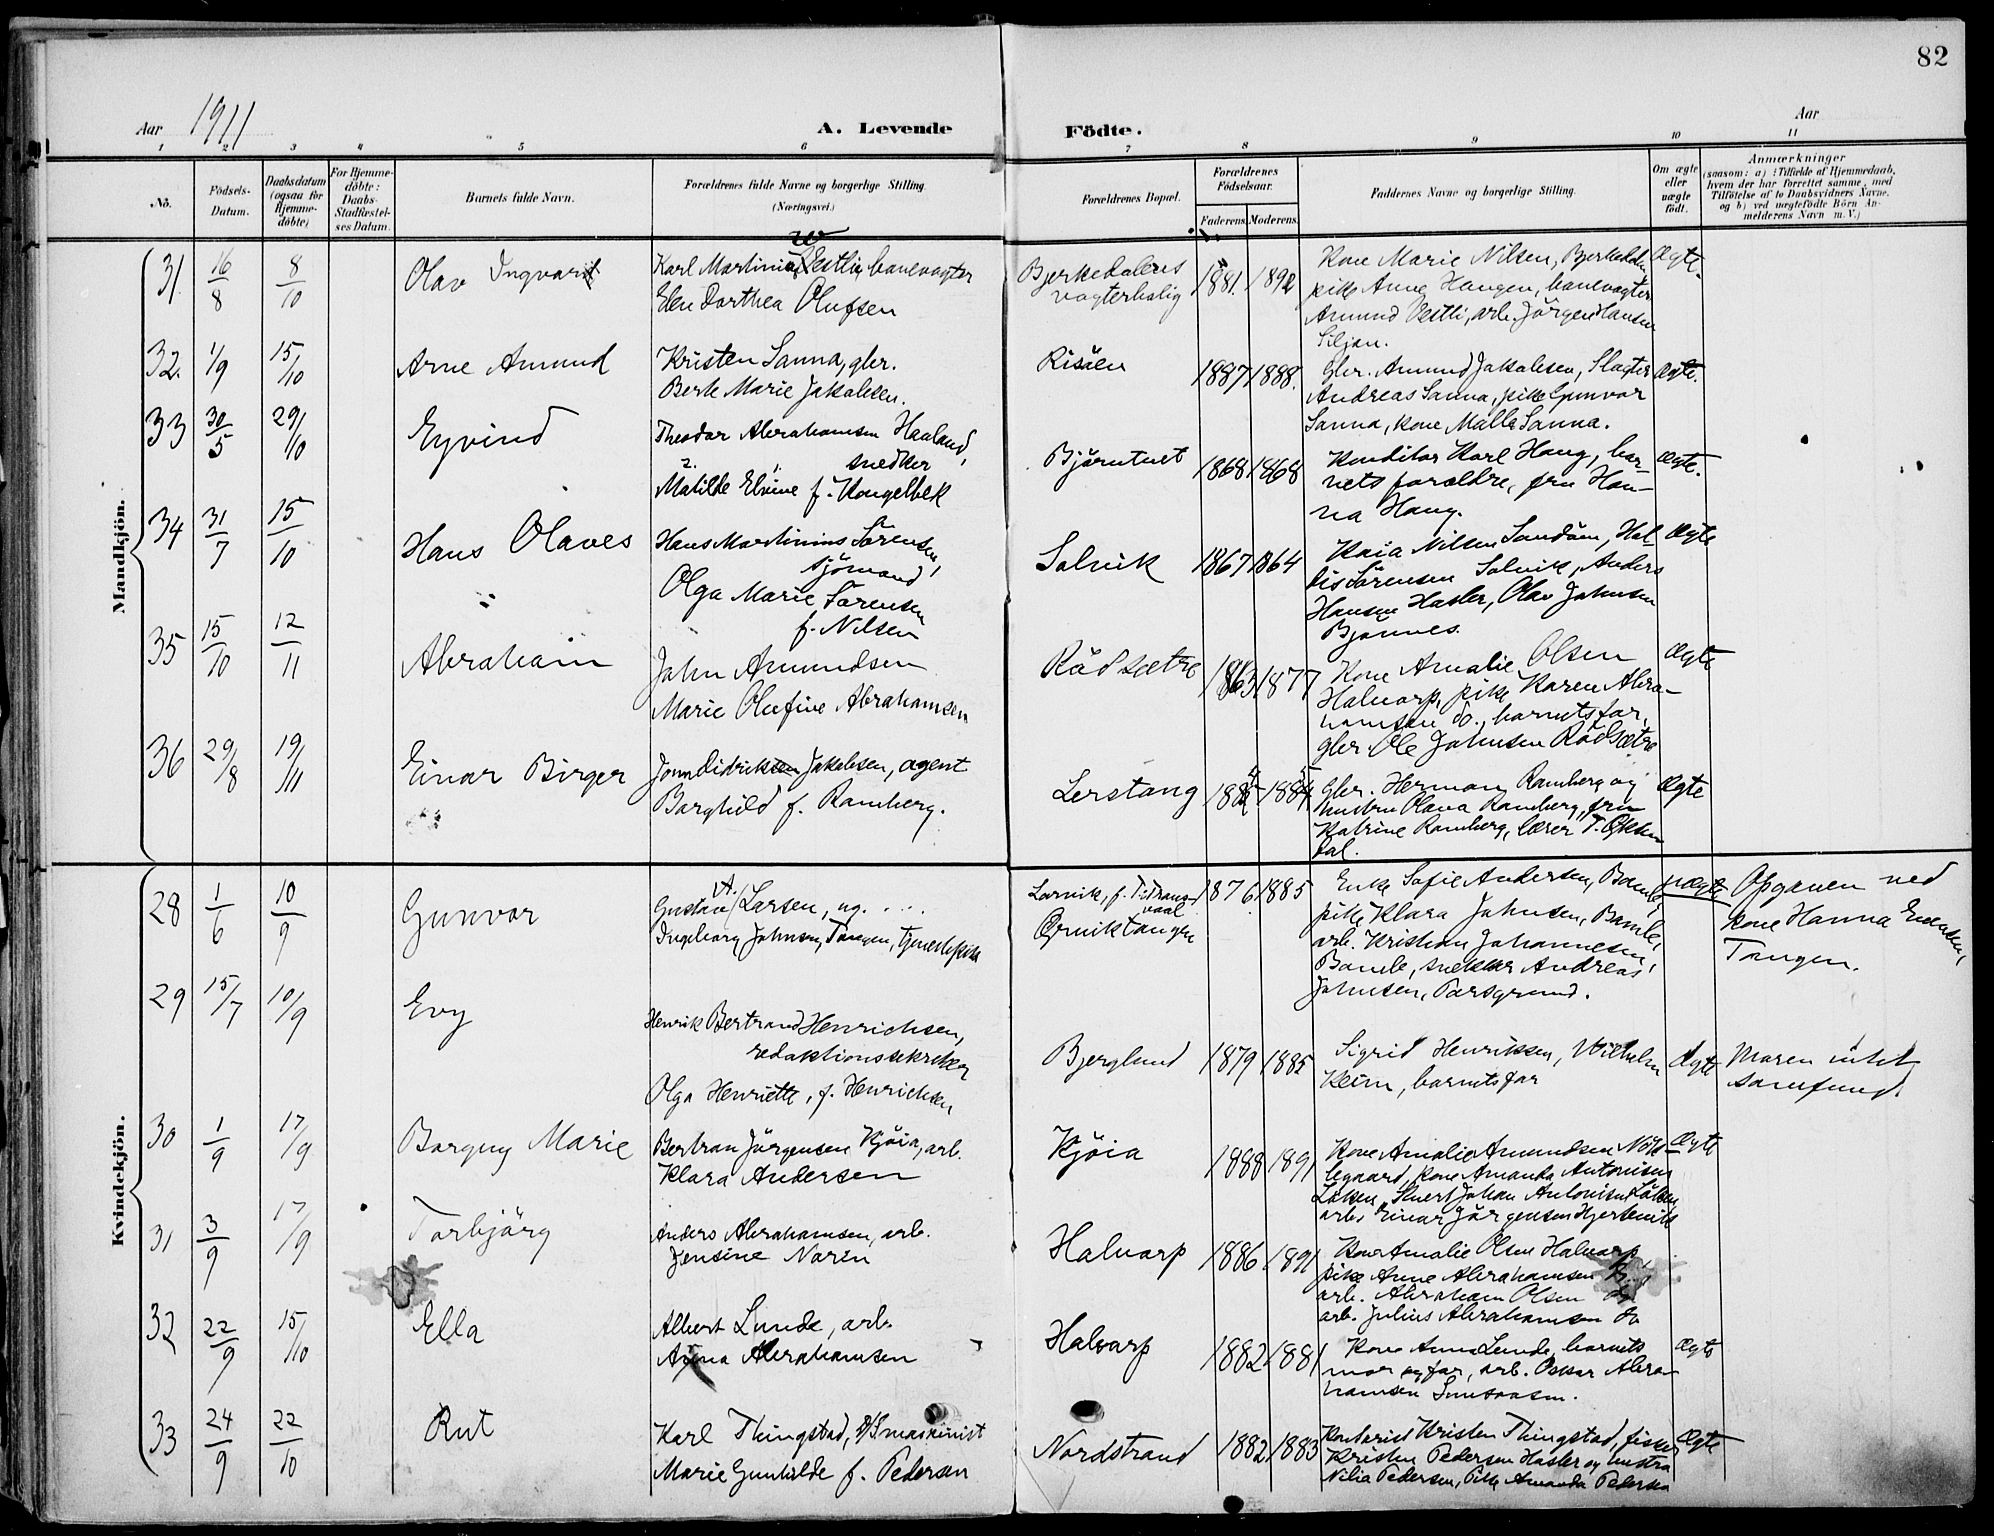 82
Aar 1911
A. Levende Födte.
Aar
1 2 3 4 5 6 7 8 9 10 11
No.
Födsels-Datum.
Daabsdatum (ogsaa for Hjemme-döbte)
For Hjemme-döbte: Daabs-Stadfæstel-ses Datum.
Barnets fulde Navn.
Forældrenes fulde Navne og borgerlige Stilling. (Næringsvei.)
Forældrenes Bopæl.
Forældrenes Födselsaar.
Faderens. Moderens.
Faddernes Navne og borgerlige Stilling.
Om ægte eller uægte födt.
Anmærkninger
(saasom: a) i Tilfælde af Hjemmedaab, hvem der har forrettet samme, med Tilföielse af to Daabsvidners Navne. og b) ved uægtefödte Börn An-melderens Navn m. V.)
Mandkjön.
31. 16/8 8/10 Olav Ingvard
Karl Martinius Westlie, banevogter
Elen Dorthea Olufsen
Bjerkedalens
vogterbolig
1881. 1892
Kone Marie Nilsen, Bjerkedalen
pike Anne Haugen, banevogter
Amund Vestli, arb. Jörgen Hansen
Siljan.
Ægte.
32. 1/9 15/10 Arne Amund
Kristen Sanna, gbr.
Berte Marie Jakobsen.
Risöen
1887 1888.
Gbr. Amund Jakobsen, Slagter
Andreas Sanna, pike Gunvor
Sanna, kone Malla Sanna.
Ægte.
33 30/5 29/10 Eyvind
Theodor Abrahamsen Haaland,
snedker
Matilde Elvine f. Kongelbek
Björntvet
1868 1868
Konditor Karl Haug, bar-
nets forældre, fru Han-
na Haug.
Ægte.
34 31/7 15/10 Hans Olaves
Hans Martinius Sörensen,
sjömand
Olga Marie Sörensen
f. Nilsen
Solvik
1867 1864
Kaia Nilsen Sandöen, Hal
Sörensen Solvik, Anders
Hansen Hasler, Olav Johnsen
Bjönnes.
Ægte
35 15/10 12/11 Abraham
John Amundsen
Marie Olufine Abrahamsen
Rödsætre
1863 1877
Kone Amalie Olsen
Halvarp, pike Karen Abra-
hamsen do., barnets far,
gbr. Ole Johnsen Rödsætre
Ægte
36 29/8 19/11 Einar Birger
Didriksen Jakobsen, agent
Borghild f. Ramberg.
Lerstang
1884
Gbr. Herman Ramberg og
hustru Olava Ramberg, fru
Katrine Ramberg, lærer T. Økken
dal.
Ægte
Kvindekjön.
28 1/6 10/9 Gunvor
Gustav A. Larsen, ug. . . .
Ingeborg Johnsen, Tangen, tjenestepike
Larvik, f. Transvaal
Örviktangen
1876 1885
Enke Sofie Andersen, Bamle,
pike Klara Johnsen, Bamle,
arb. Kristian Johannesen,
Bamle, snekker Andreas
Johnsen, Porsgrund.
uægte
Opgaven ved
kone Hanna Evensen,
Tangen.
29 15/7 10/9 Evy
Henrik Bertrand Henrichsen,
redaktionssekretær
Olga Henriette, f. Henrichsen
Bjerglund
1879 1885
Sigrid Henriksen, Wilhelm
Keim, barnets far
Ægte
Moren intet
samfund
30 1/9 17/9 Borgny Marie
Bertran Jörgensen Kjöia, arb.
Klara Andersen
Kjöia
1888 1891
Kone Amalie Amundsen Nöld-
legaard, kone Amanda Antonisen
Löksen, Johan Antonisen Löksen
arb. Einar Jörgensen Hjertevik
Ægte
31 3/9 17/9 Torbjörg
Anders Abrahamsen, arb.
Jensine Norin
Halvarp
1886 1891
Kone Amalie Olsen Halvarp,
pike Anne Abrahamsen
arb. Abraham Olsen do
arb. Julius Abrahamsen do
32 22/9 15/10 Ella
Albert Lunde, arb.
Anna Abrahamsen
Halvarp
1882 1881
Kone Anna Lunde, barnets
mor og far, arb. Oskar Abra-
hamsen
Ægte
33 24/9 22/10 Rut
Karl Thingstad, maskinist
Marie Gunhilde f. Pedersen
Nordstrand
1882 1883
Kontorist Kristen Thingstad, fisker
Kristen Pedersen Hasler og hustru
Nilia Pedersen, Pike Amanda Pedersen
Ægte